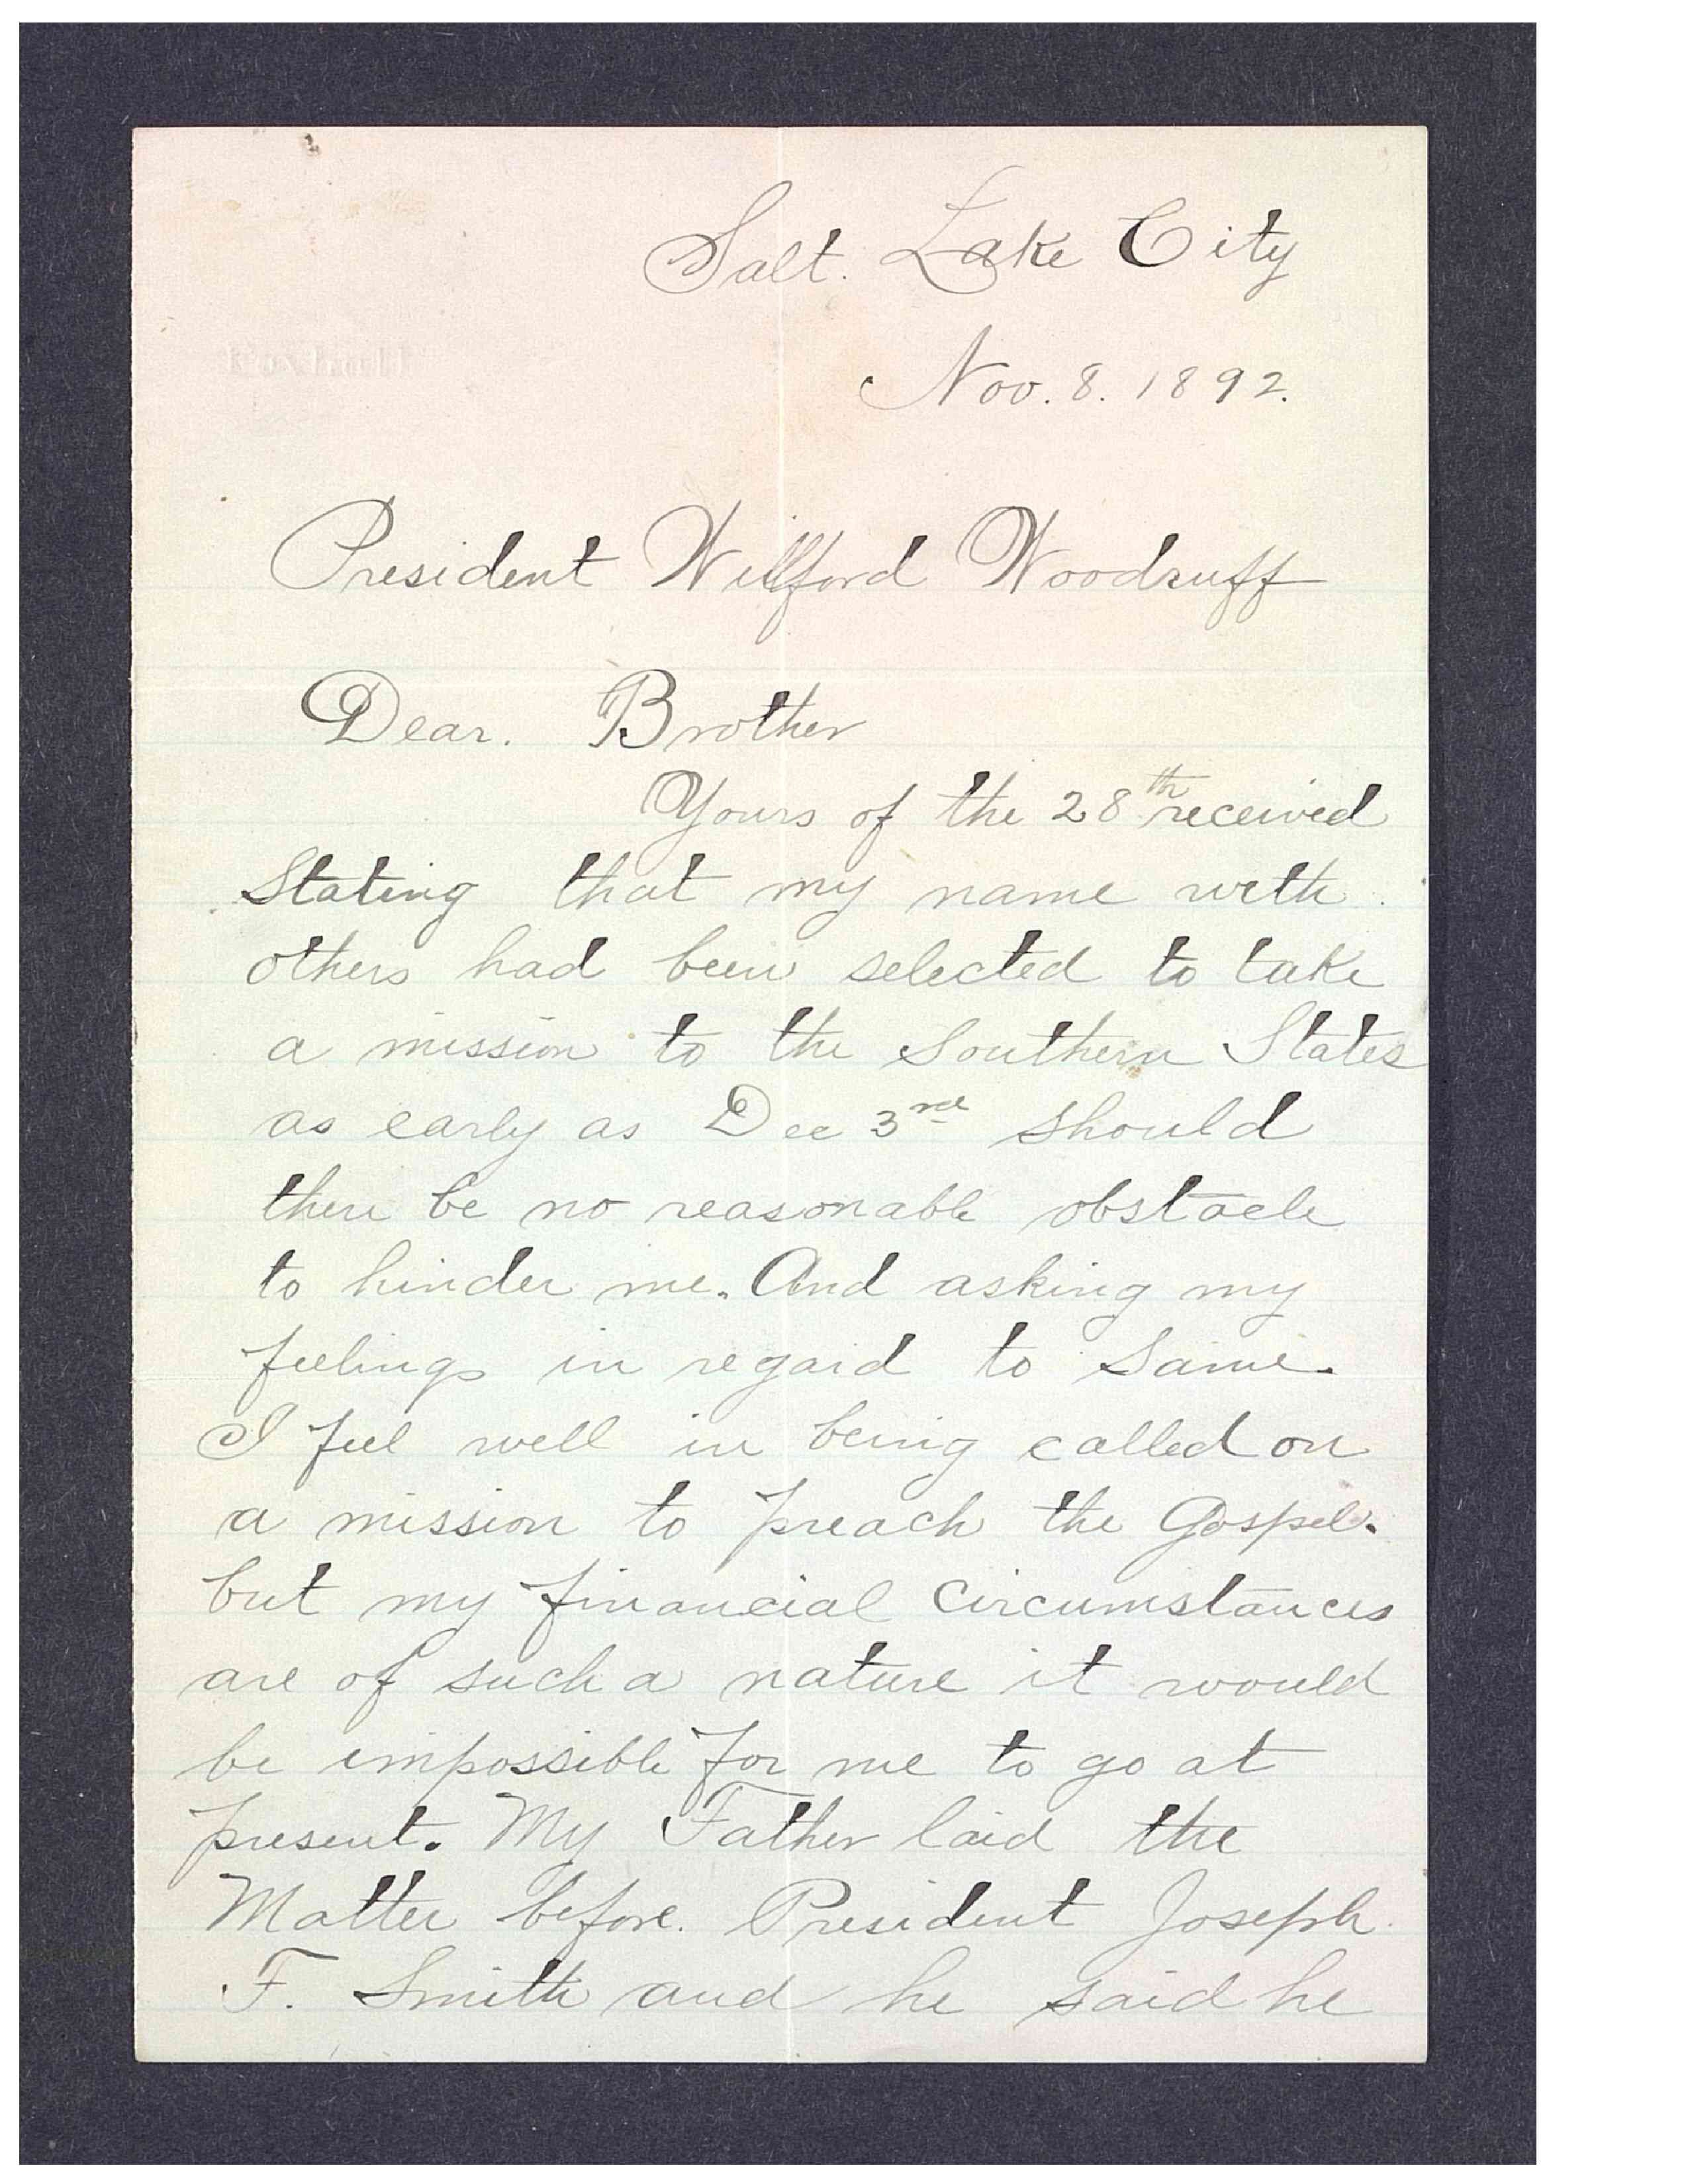 Salt. Lake City
Nov. 8. 1892.
President Wilford Woodruff
Dear. Brother
Yours of the 28th received
Stating that my name with
others had been selected to take
a mission to the Southern States
as early as Dec 3rd should
there be no reasonable obstacle
to hinder me. And asking my
feelings in regard to Same.
I feel well in being called on
a mission to preach the Gospel.
but my financial Circumstances
are of such a nature it would
be impossible for me to go at
present. My Father laid the
Matter before. President Joseph
F. Smith and he said he